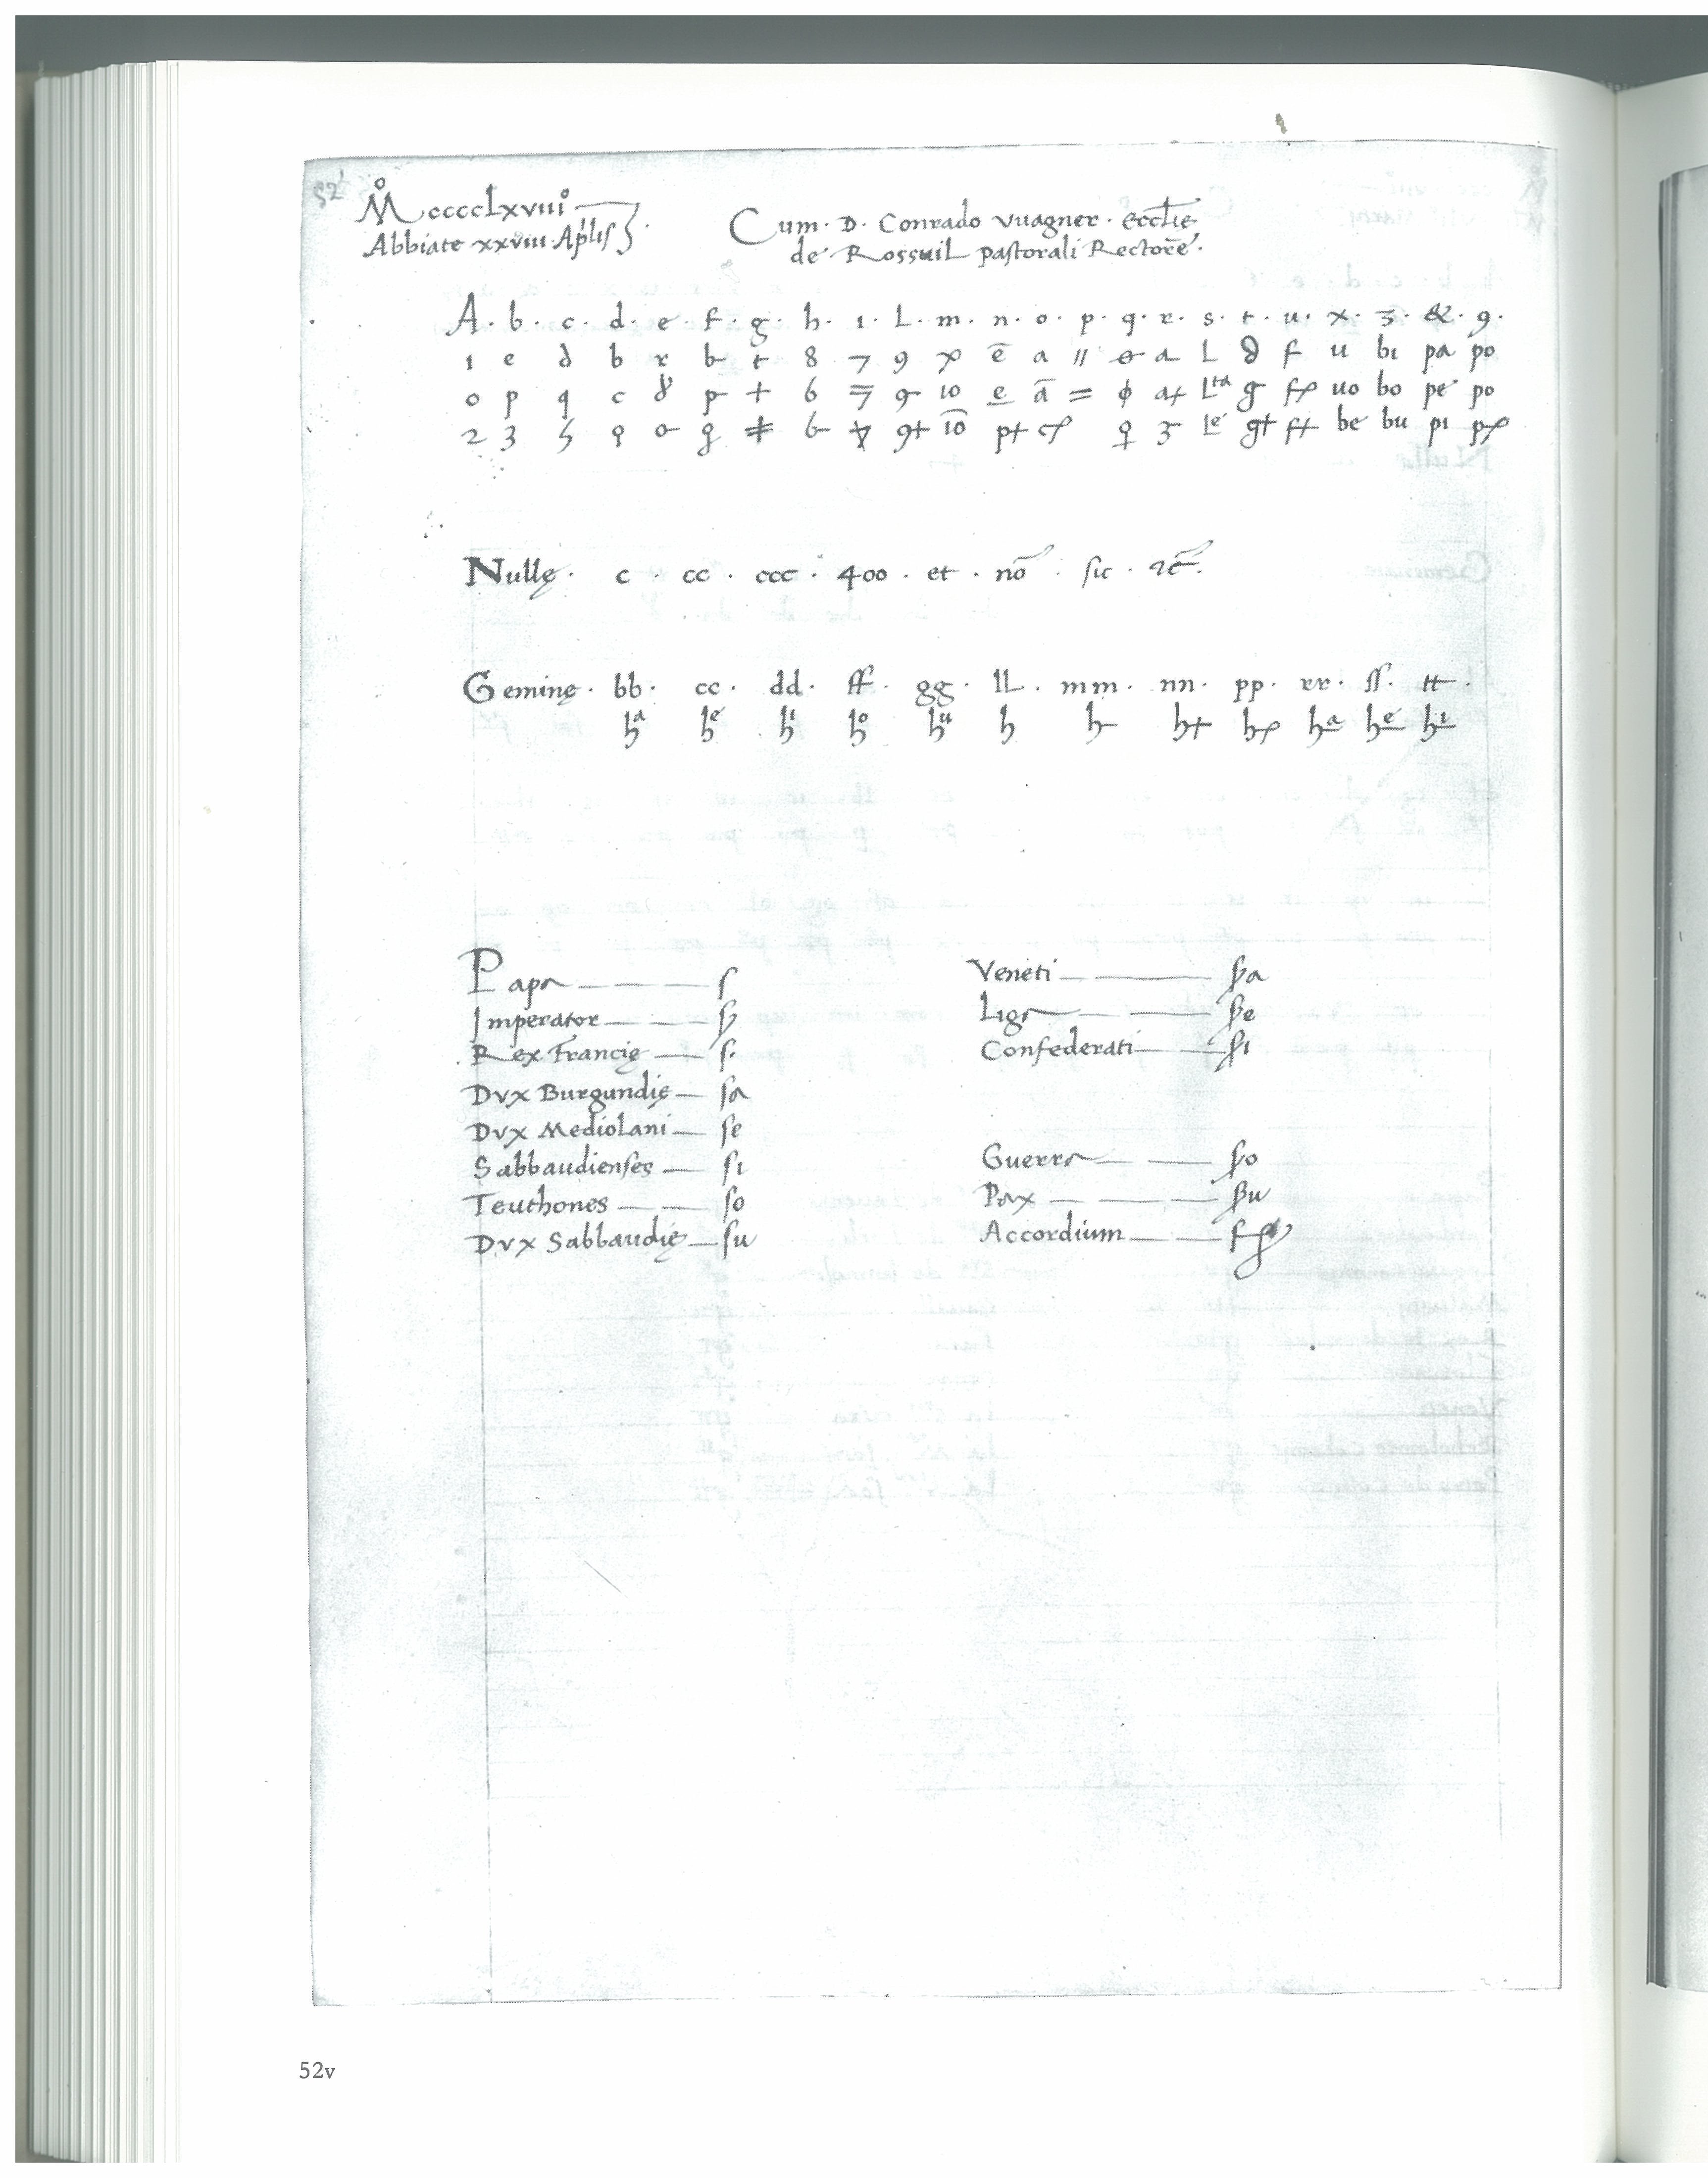 52
Mº ccccLxviiiº
Abbiate xxviii Ap̄lis
Cum · D · Conrado Vuagner · Eccl̄ie
de Rossuil pastorali Rectorē ·
A · b · c · d · e · f · g · h · ı · L · m · n · o · p · q · r · s · t · u · x · ʒ · & · 9 ·
1 e d b r b t 8 7 9 ē a // a L f u bı pa po
o p q c p + 6 9 10 e ā = ϕ Lta g uo bo pe po
2 3 9+ 10 p+ 3 Le g+ f+ be bu pı
Nullę · c · cc · ccc · 400 · et · nō · sic · 
Geminę · bb · cc · dd · ff · gg · lL · mm · nn · pp · rr · ss · tt ·
ha he hı ho hu h h h+ ha he hı
Papa ſ
Imperator
Rex Francię ſ·
Dvx Burgundię ſa
Dvx Mediolani ſe
Sabbaudienses ſı
Teuthones ſo
Dvx Sabbaudię ſu
Veneti ꟊa
Liga ꟊe
Confederati ꟊı
Guerra ꟊo
Pax ꟊu
Accordium
52v